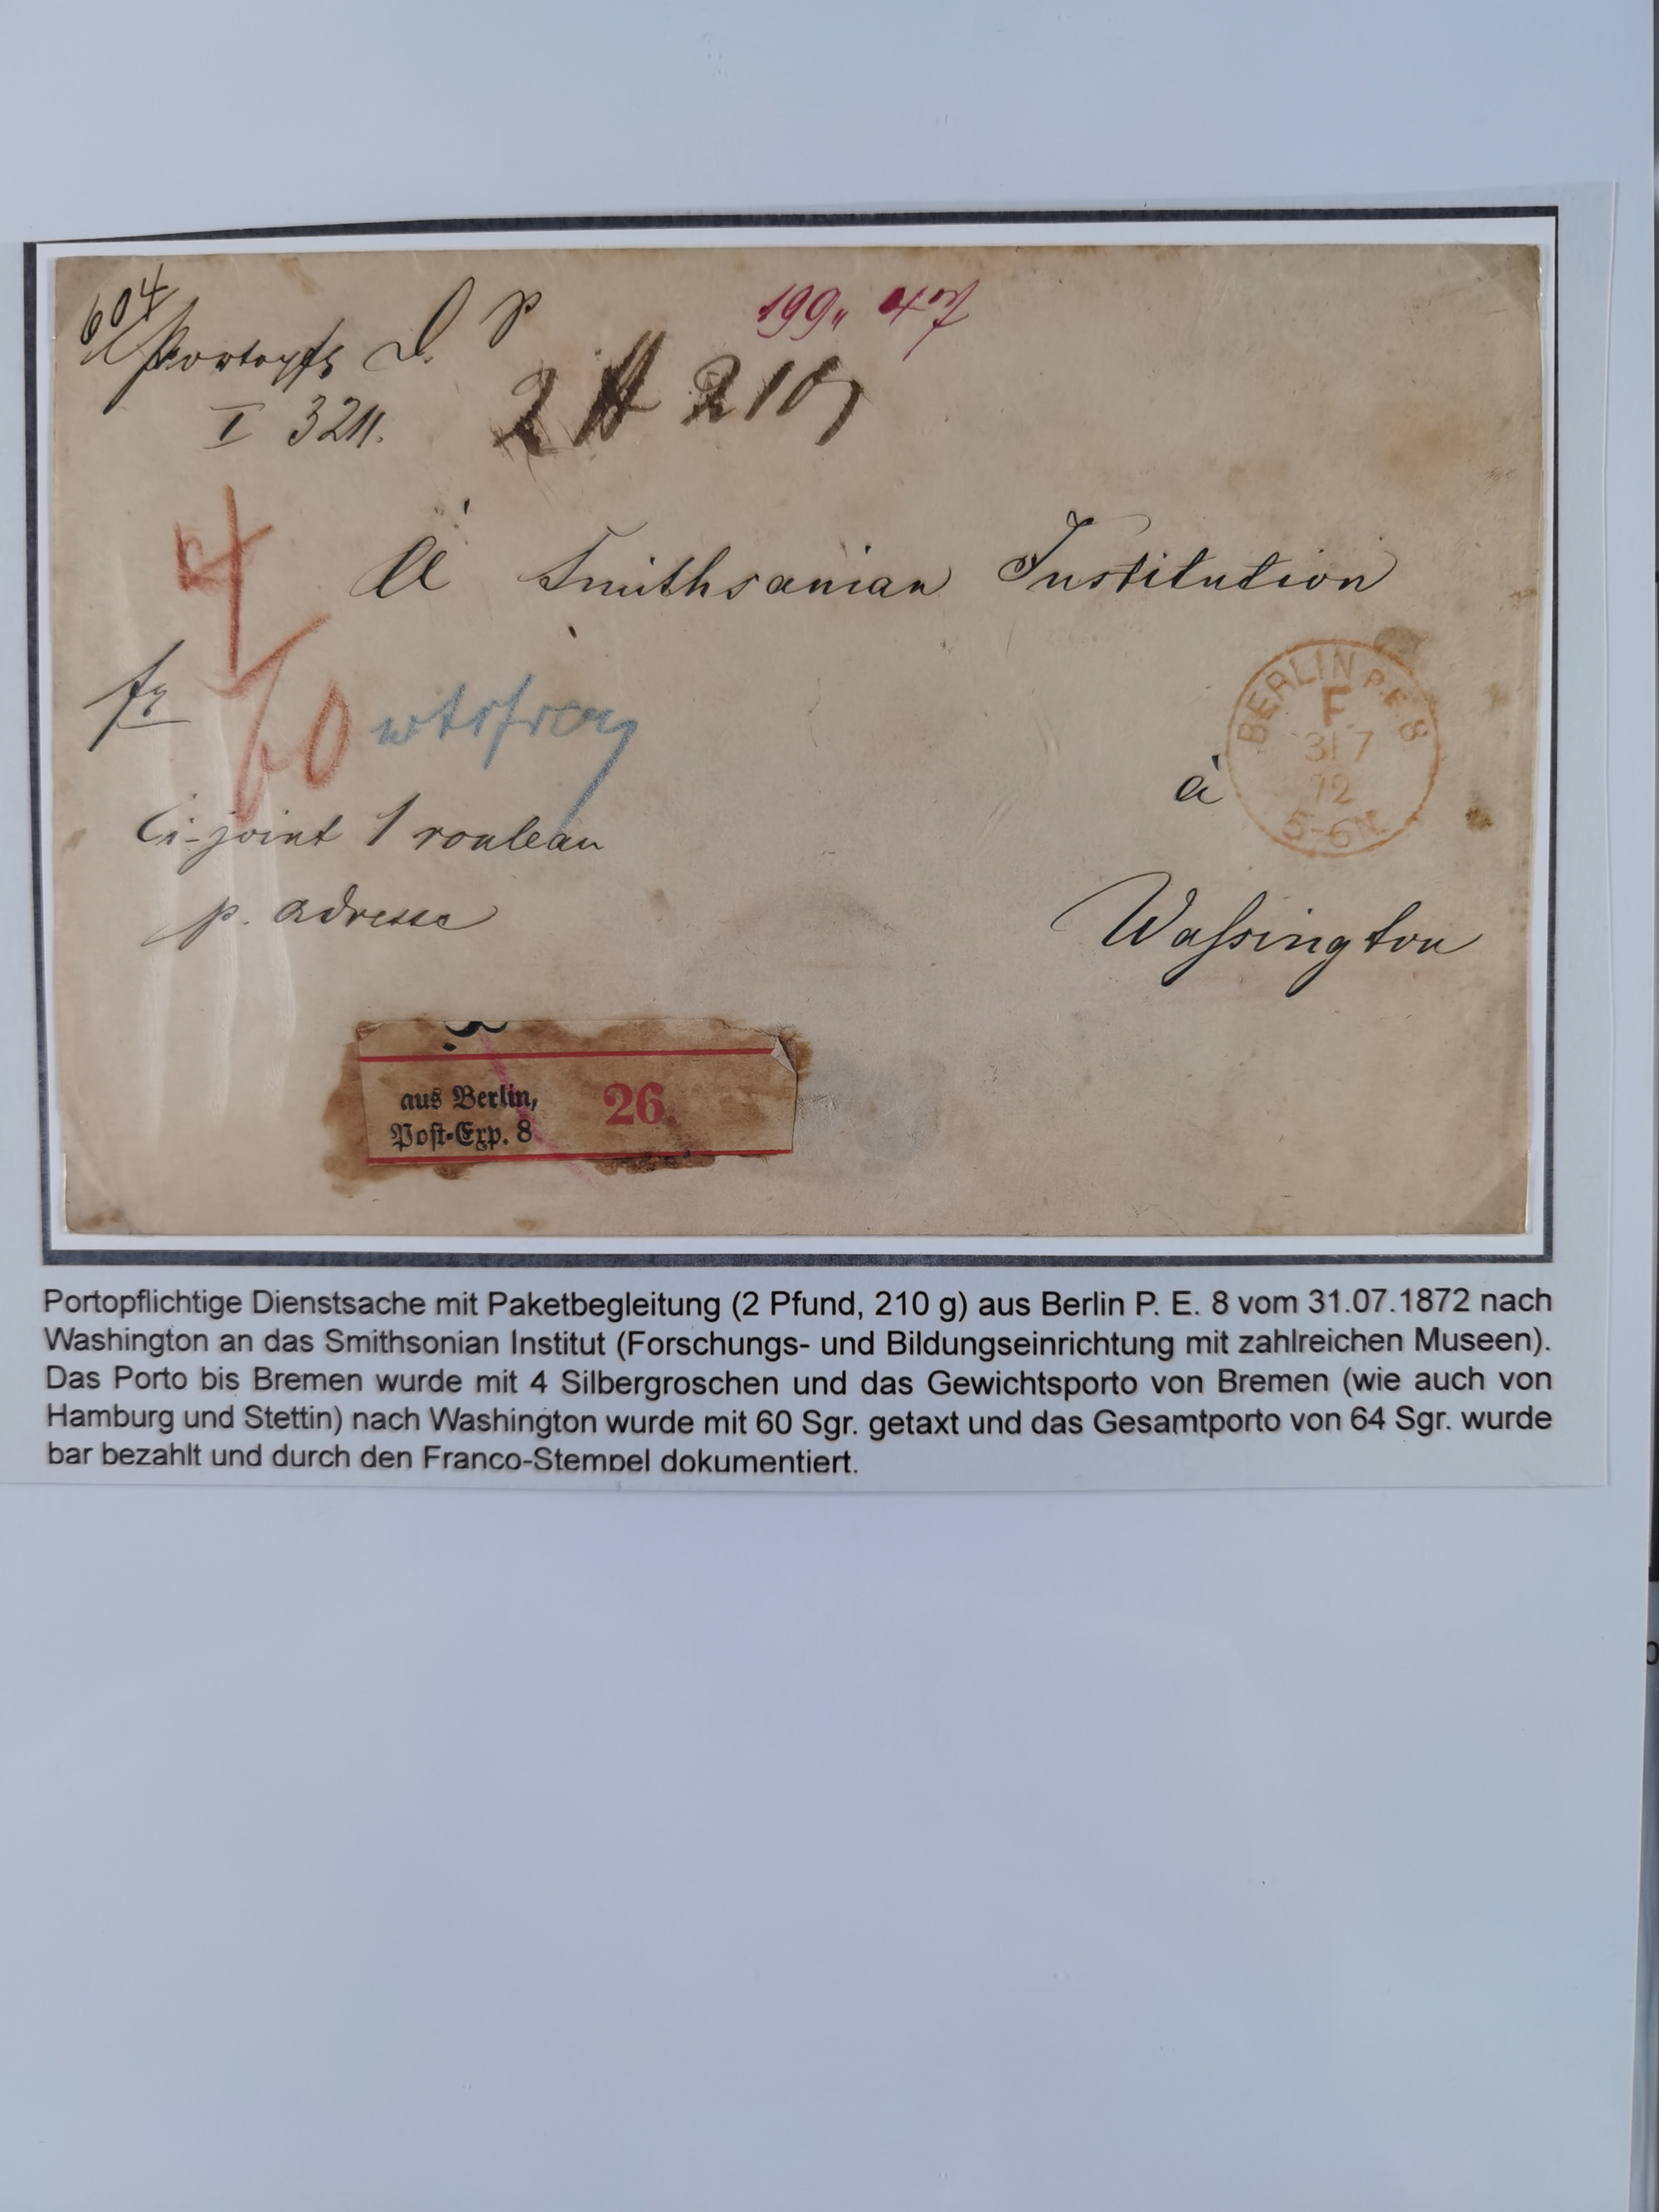 604
Portopfl D. P
I 3211.
199,,
2 ℔ 210
A Smithsonian Institution
4
60
fr
BERLIN P.E. 8
F
31 7
72
5-6N
à
Ci-joint 1 rouleau
p. adresse
Wassington
aus Berlin,
Post-Exp. 8
26.
Portopflichtige Dienstsache mit Paketbegleitung (2 Pfund, 210 g) aus Berlin P. E. 8 vom 31.07.1872 nach
Washington an das Smithsonian Institut (Forschungs- und Bildungseinrichtung mit zahlreichen Museen).
Das Porto bis Bremen wurde mit 4 Silbergroschen und das Gewichtsporto von Bremen (wie auch von
Hamburg und Stettin) nach Washington wurde mit 60 Sgr. getaxt und das Gesamtporto von 64 Sgr. wurde
bar bezahlt und durch den Franco-Stempel dokumentiert.